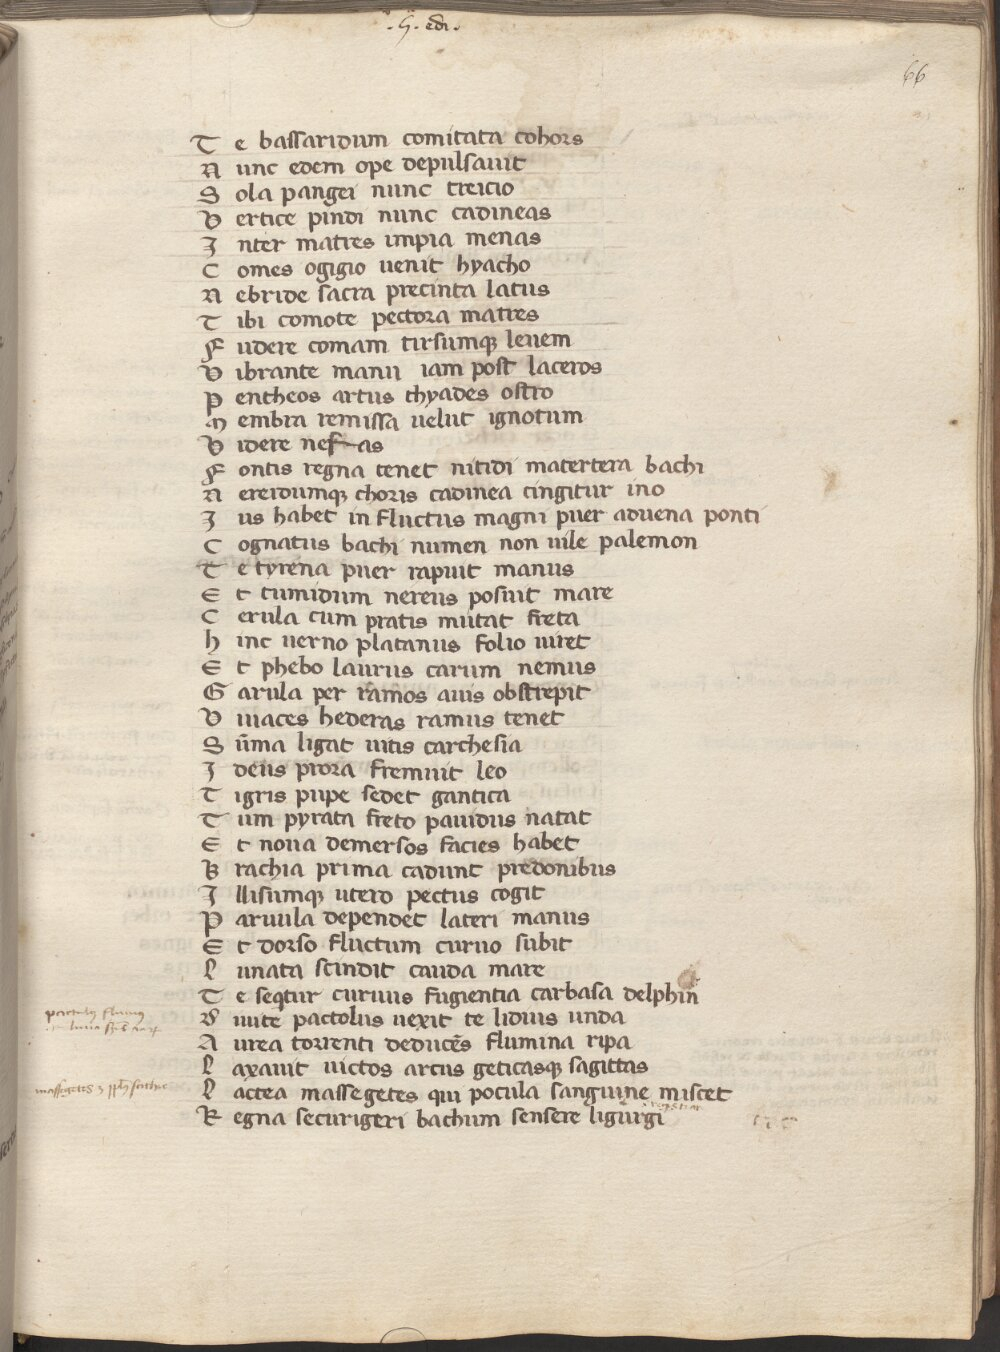 .h. edi.
66
T e bassaridum comitata cohors
N unc edem ope depulsauit
S ola pangei nunc treicio
V ertice pindi nunc cadineas
I nter matres impia menas
C omes ogigio uenit hyacho
N ebride sacra precinta latus
T ibi comote pectora matres
F udere comam tirsumq; leuem
V ibrante manu iam post laceros
P entheos artus thyades ostro
M embra remissa uelut ignotum
V idere nefas
F ontis regna tenet nitidi matertera bachi
N ereidumq; choris cadinea cingitur ino
I us habet in fluctus magni puer aduena ponti
C ognatus bachi numen non uile palemon
T e tyrena puer rapuit manus
E t tumidum nereus posuit mare
C erula cum pratis mutat freta
h inc uerno platanus folio uiret
E t phebo laurus carum nemus
G arula per ramos auis obstrepit
V iuaces hederas ramus tenet
S ūma ligat uitis carchesia
I deus prora fremuit leo
T igris pupe sedet gantica
T um pyrata freto pauidus natat
E t noua demersos facies habet
B rachia prima cadunt predonibus
I llisumq; utero pectus cogit
P aruula dependet lateri manus
E t dorso fluctum curuo subit
L unata scindit cauda mare
T e seqtur curuus fugientia carbasa delphin
D iuite pactolus uexit te lidius unda
A urea torrenti deducēs flumina ripa
L axauit uictos arcus geticasq; sagittas
L actea massegetes qui pocula sanguine miscet
R egna securigeri bachum sensere ligurgi
pactolus fluuius
massegetes